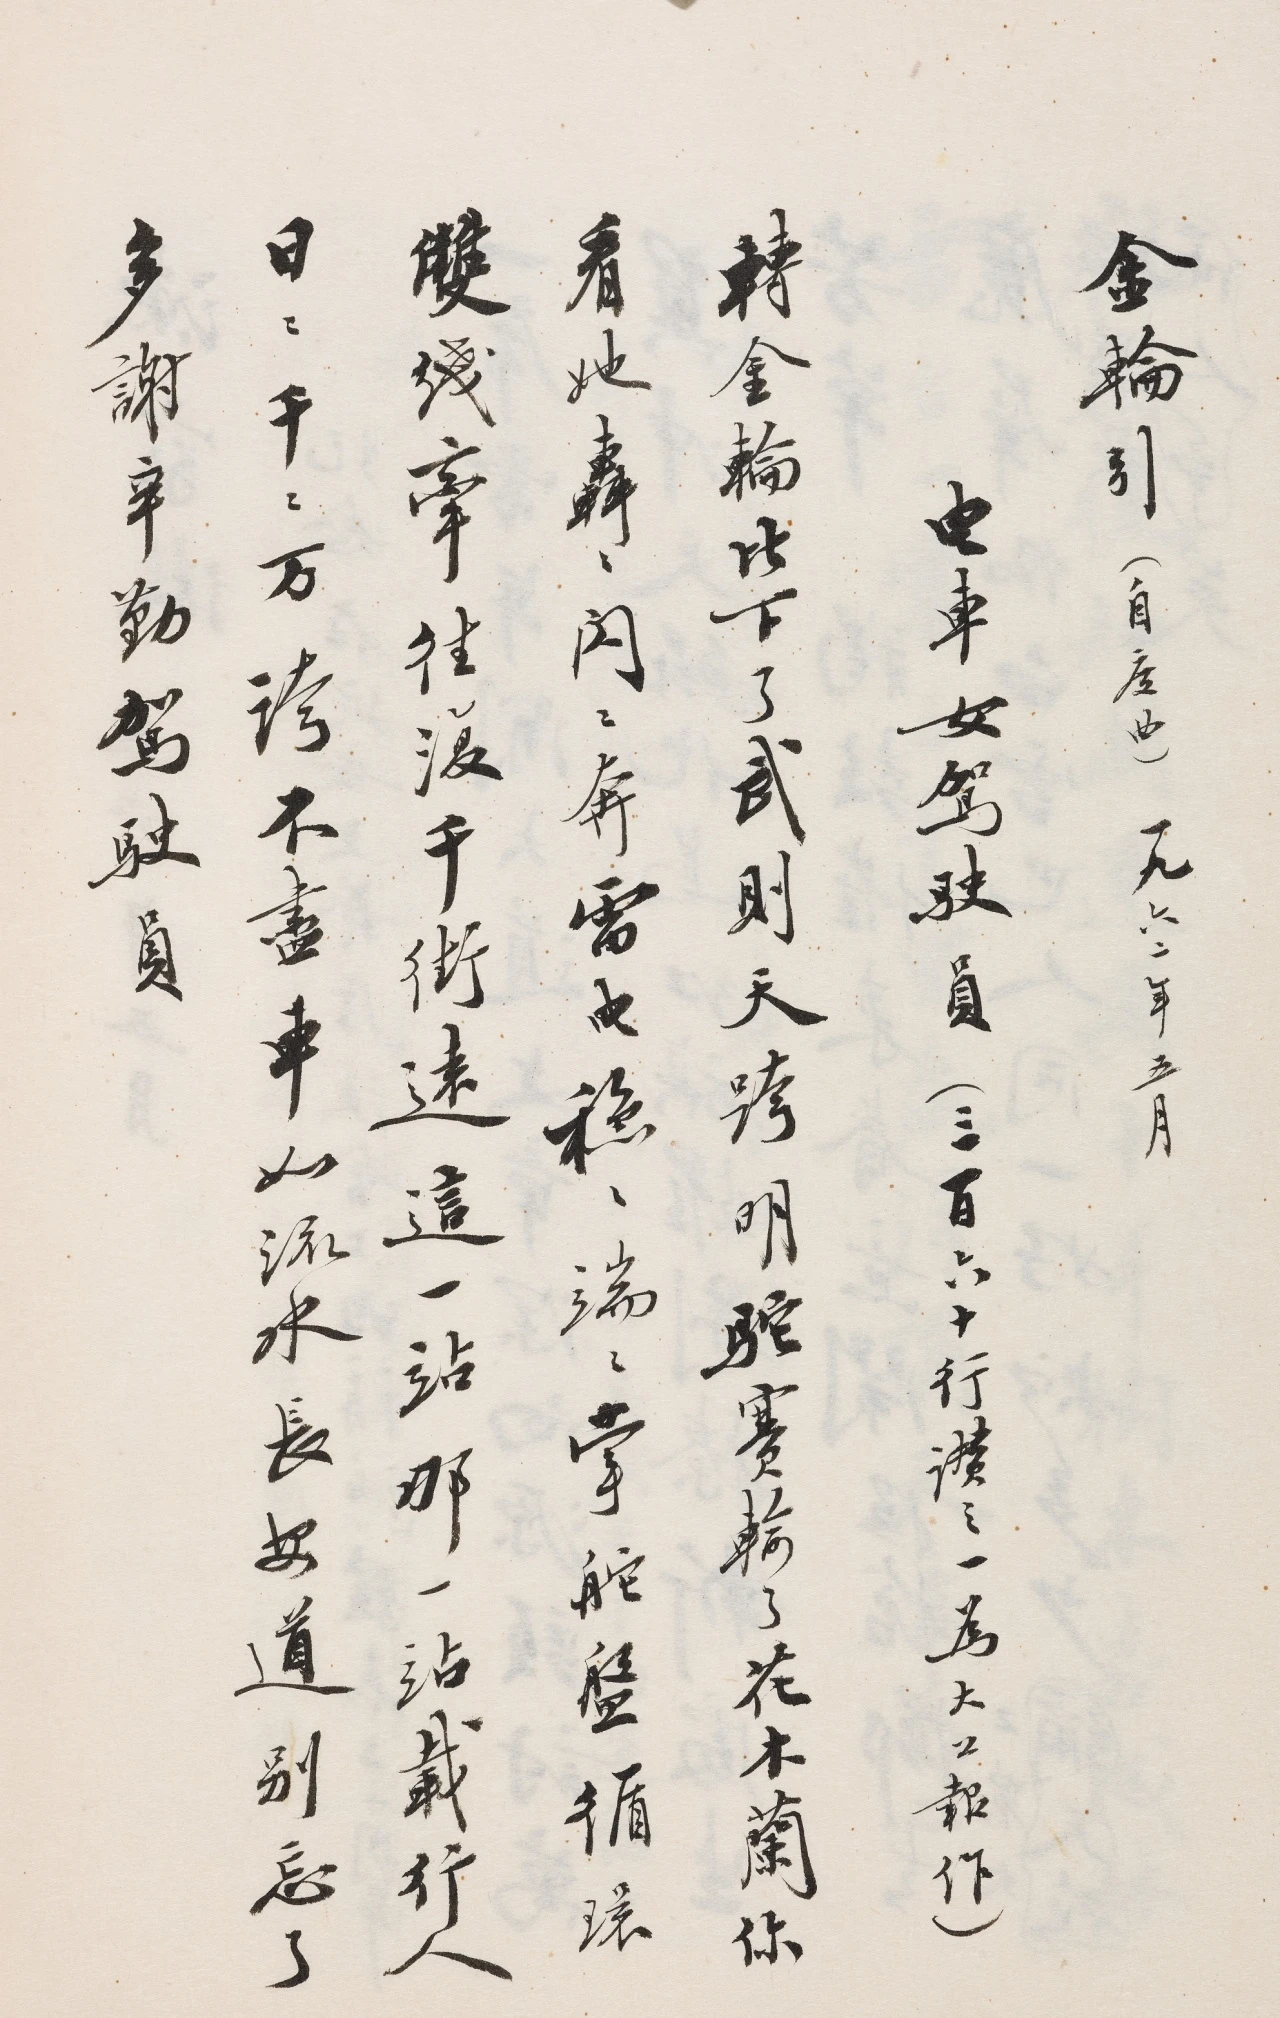 金輪引（自度曲）一九六二年五月
电車女駕駛員（三百六十行讚之一為大公報作）
轉金輪比下了武則天跨明駝賽輸了花木蘭你
看她轟〻闪〻奔雷电穏〻端〻掌舵盤循環
雙线牽往復千街遠這一站那一站載行人
日〻千〻万誇不盡車如流水長安道别忘了
多謝辛勤駕駛員